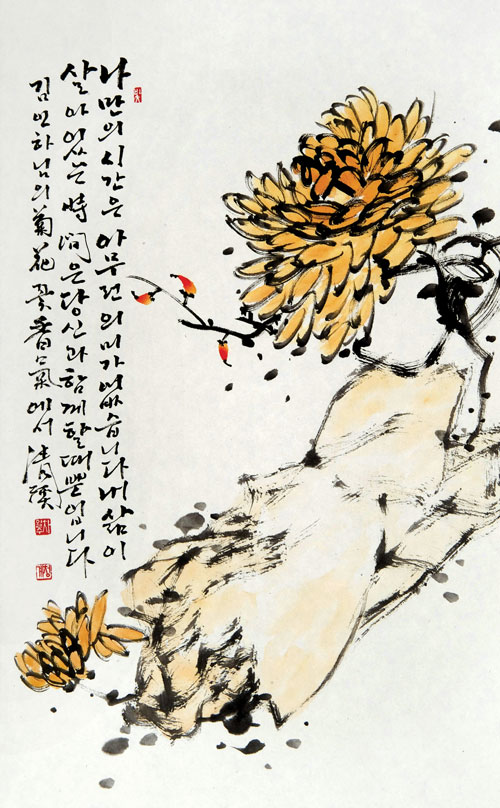 나만의 시간은 아무런 의미가 없습니다 내 삶이
살아 있는 時間은 당신과 함께 할 때 뿐입니다
김인하님의 菊花꽃香氣에서